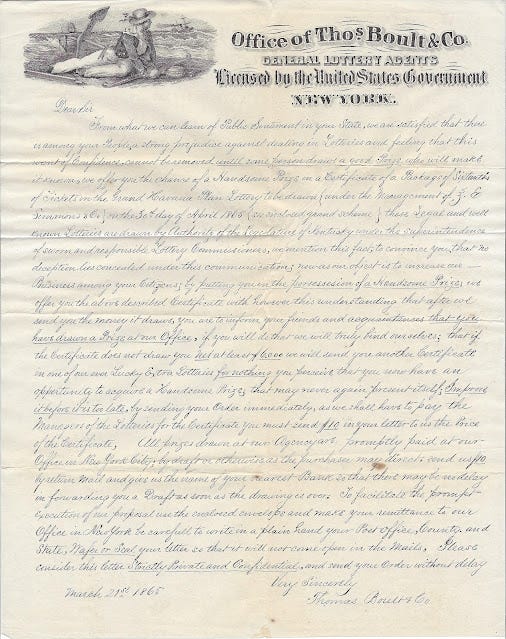 Office of Thos Boult & Co.
GENERAL LOTTERY AGENTS
Licensed by the United States Government
NEW YORK.
Dear Sir
From what we can learn of Public Sentiment in your State, we are satisfied that there
is among your People, a strong prejudice against dealing in Lotteries and feeling that this
want of Confidence, cannot be removed untill some person draws a good Prize who will make
it known, we offer you the chance of a Handsome Prize in a Certificate of a Package of Sixteenths
of Tickets in the Grand Havana Plan Lottery to be drawn (under the Management of Z. E
Simmons & Co) on the 30th day of April 1865 (see inclosed grand scheme) these Legal and well
known Lotteries are drawn by Authority of the Legislature of Kentucky under the superintendence
of sworn and responsible Lottery Commissioners, we mention this fact, to convince you, that no
deception lies concealed under this communication; now as our object is to increase our
Business among your Citizens; by putting you in the possession of a Handsome Prize, we
offer you the above described Certificate with however this understanding that after we
send you the money it draws, you are to inform your friends and acquaintances that you
have drawn a Prize at our Office, if you will do that we will truly bind ourselves; that if
the Certificate does not draw you net at least $ we will send you another Certificate
in one of our ever Lucky Extra Lotteries for nothing you perceive that you now have an
opportunity to acquire a Handsome Prize, that may never again present itself, Improve
it before it is too late, by sending your Order immediately, as we shall have to pay the
Managers of the Lotteries for the Certificate you must send $10 in your letter to us the Price
of the Certificate, All Prizes drawn at our Agency are promptly paid at our
Office in New York City, by draft or otherwise as the purchaser may direct. send us $10
by return Mail and give us the name of your nearest Bank so that there may be no delay
in forwarding you a Draft as soon as the drawing is over. To facilitate the prompt
execution of our proposal use the enclosed envelope and make your remittance to our
Office in New York be carefull to write in a plain hand your Post office, County and
State, Wafer or Seal your letter so that it will not come open in the Mails. Please
consider this letter Strictly Private and Confidential, and send your Order without delay
Very Sincerely
March 21st 1865 Thomas Boult & Co